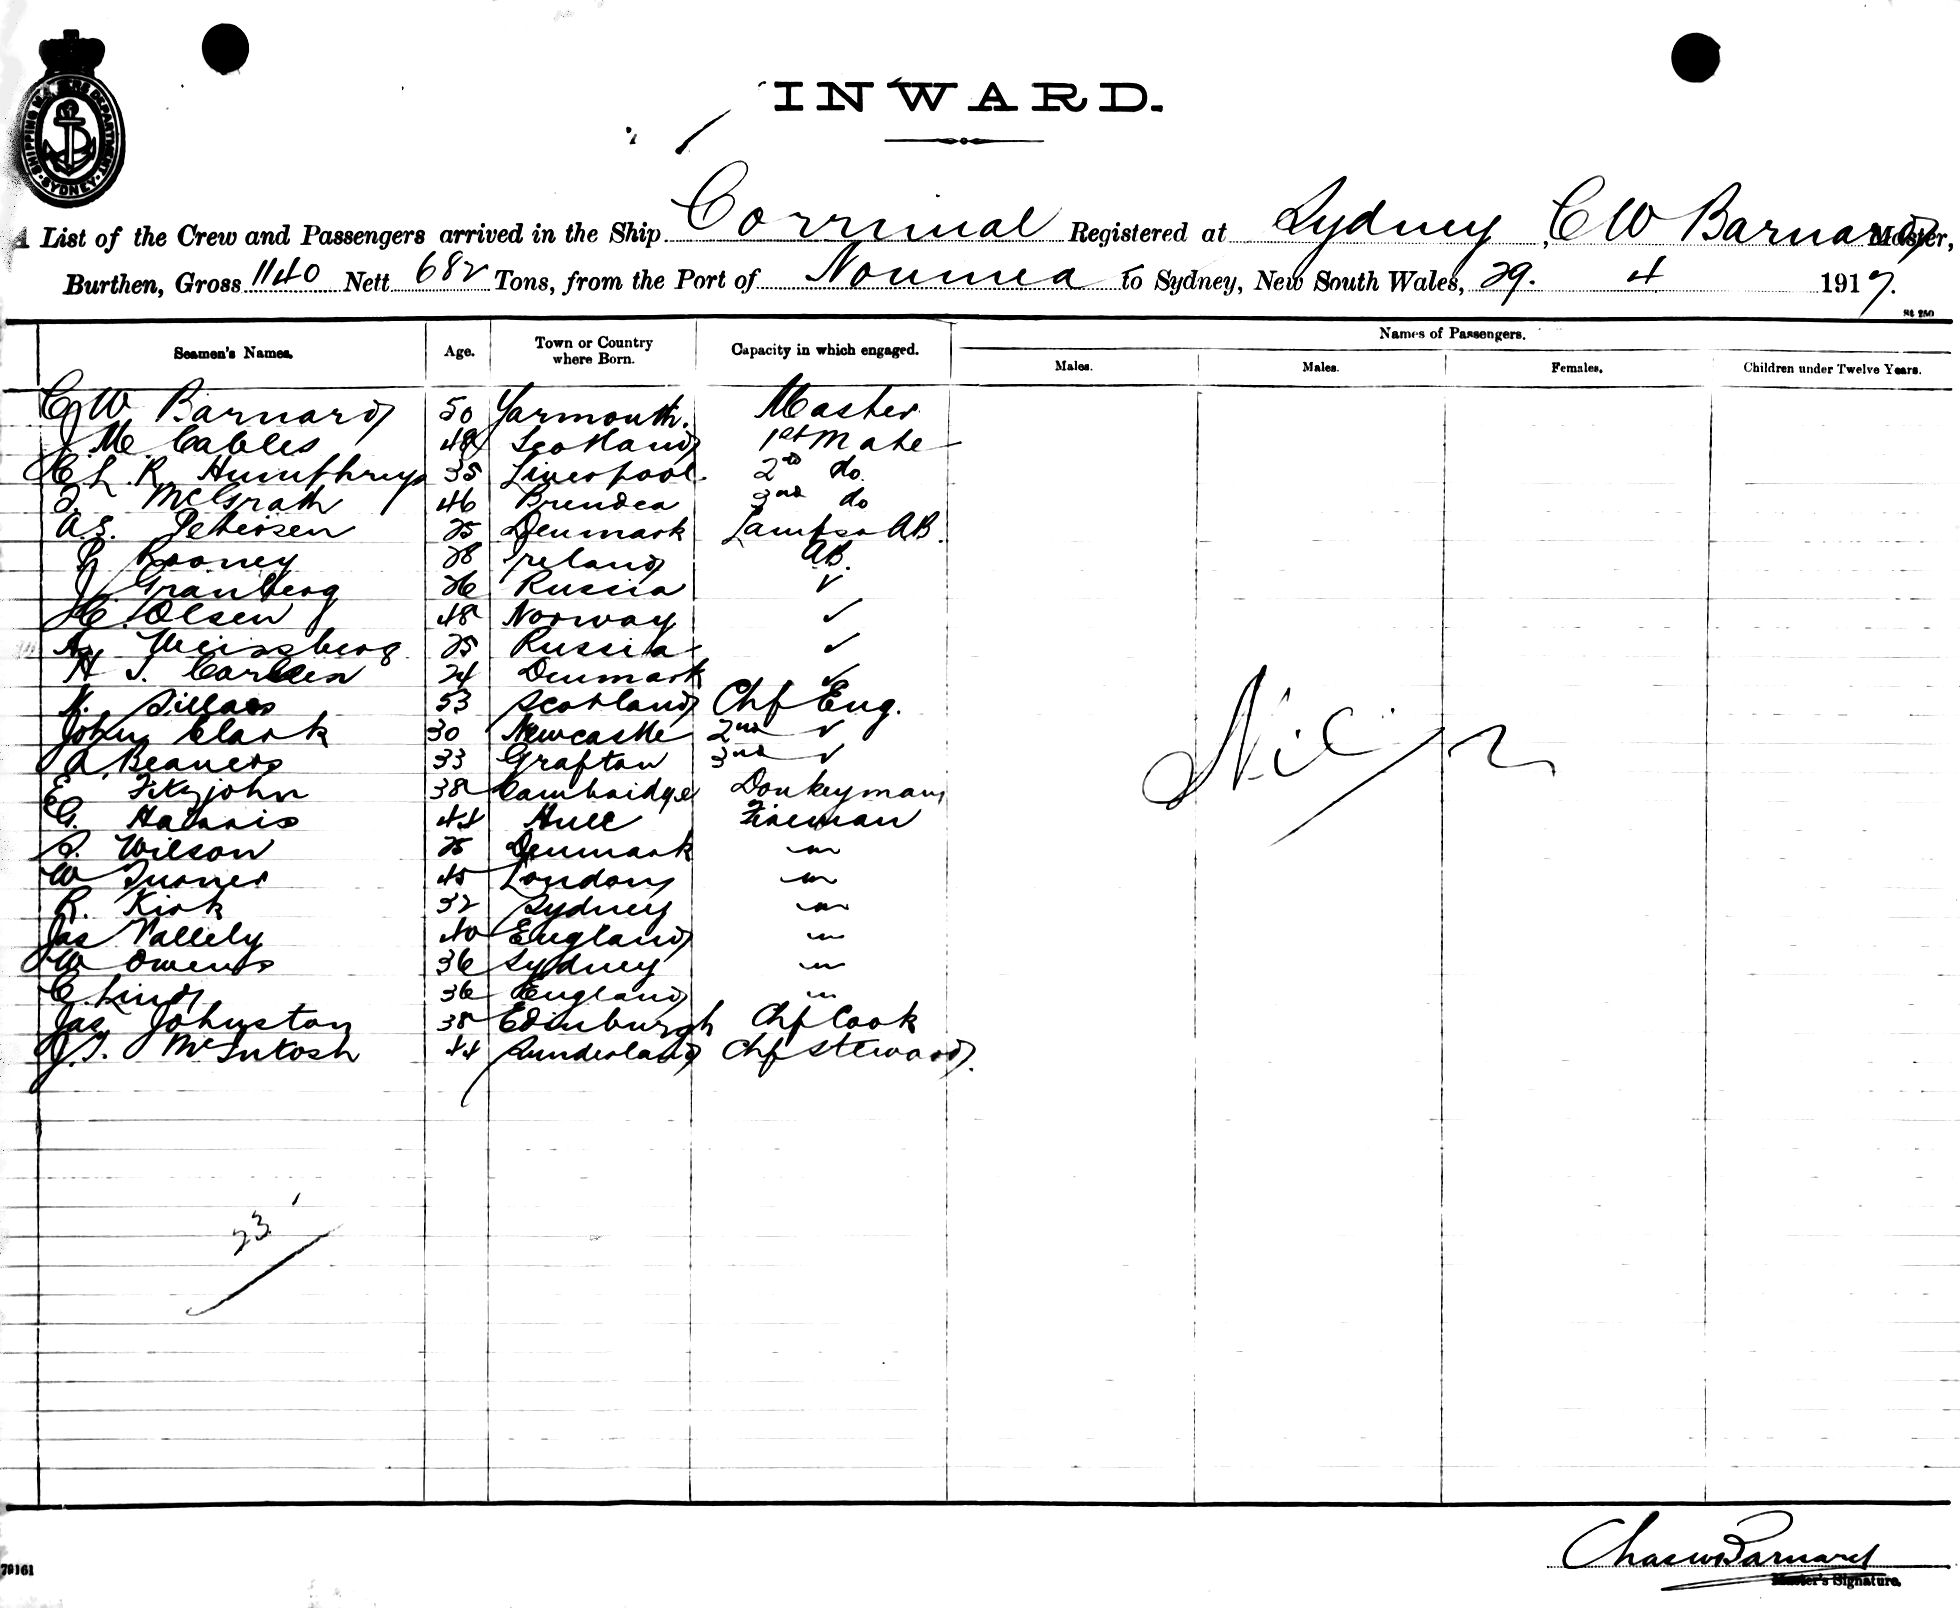 SHIPPING MASTERS DEPARTMENT SYDNEY
INWARD.
A List of the Crew and Passengers arrived in the Ship Corrimal Registered at Sydney C W Barnard Master,
Burthen, Gross 1140 Nett 682 Tons, from the Port of Noumea to Sydney, New South Wales, 29. 4 1917.
Seamen's Names. Age. Town or Country where Born. Capacity in which engaged. Names of Passengers.
Males. Males. Females. Children under Twelve Years.
C W Barnard 50 Yarmouth. Master
J. Mc Cables 48 Scotland 1st Mate
L. R. Humphreys 35 Liverpool. 2nd do.
McGrath 46 3rd do
A. S. Petersen 25 Denmark Lamps AB.
Rooney 28 Ireland AB.
J Granberg 26 Russia ✓
H. Olsen 48 Norway ✓
Weissberg 25 Russia ✓
H J. Carlsen 24 Denmark ✓
N. Sillars 53 Scotland Chf Eng.
John Clark 30 Newcastle 2nd ✓
A. Beavers 33 Grafton 3rd ✓
E Fitzjohn 38 Cambridge Donkeyman
G. Harris 44 Hull Fireman
S. Wilson 25 Denmark "
W Turner 45 London "
R. Kirk 32 Sydney "
Jas Vallely 40 England "
W Owens 36 Sydney "
C. Lind 36 England "
Jas Johnston 38 Edinburgh Chf Cook
J. T. McIntosh 44 Sunderland Chf Steward.
Nil
23
Chas W Barnard
Master's Signature.
79161